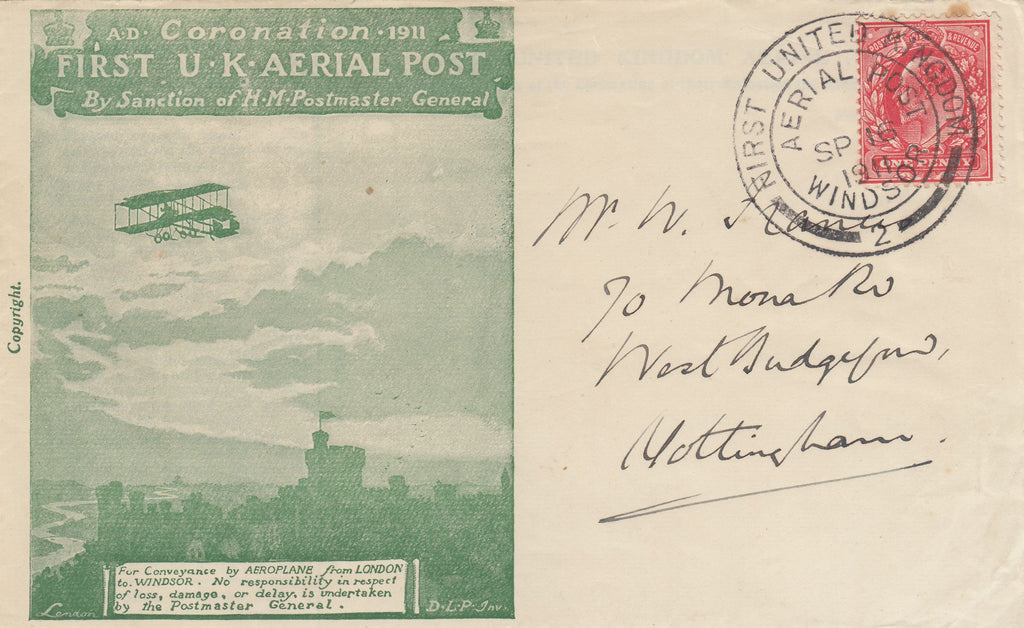 A·D· Coronation · 1911
FIRST U·K·AERIAL POST
By Sanction of H·M·Postmaster General
Copyright.
For Conveyance by AEROPLANE from LONDON
to WINDSOR. No responsibility in respect
of loss, damage, or delay, is undertaken
by the Postmaster General.
London
D·L·P·Inv.
FIRST UNITED KINGDOM
AERIAL POST
SP 16
1911
WINDSOR
2
POSTAGE & REVENUE
ONE PENNY
Mr. W.
70 Mona Rd
West Bridgford,
Nottingham.